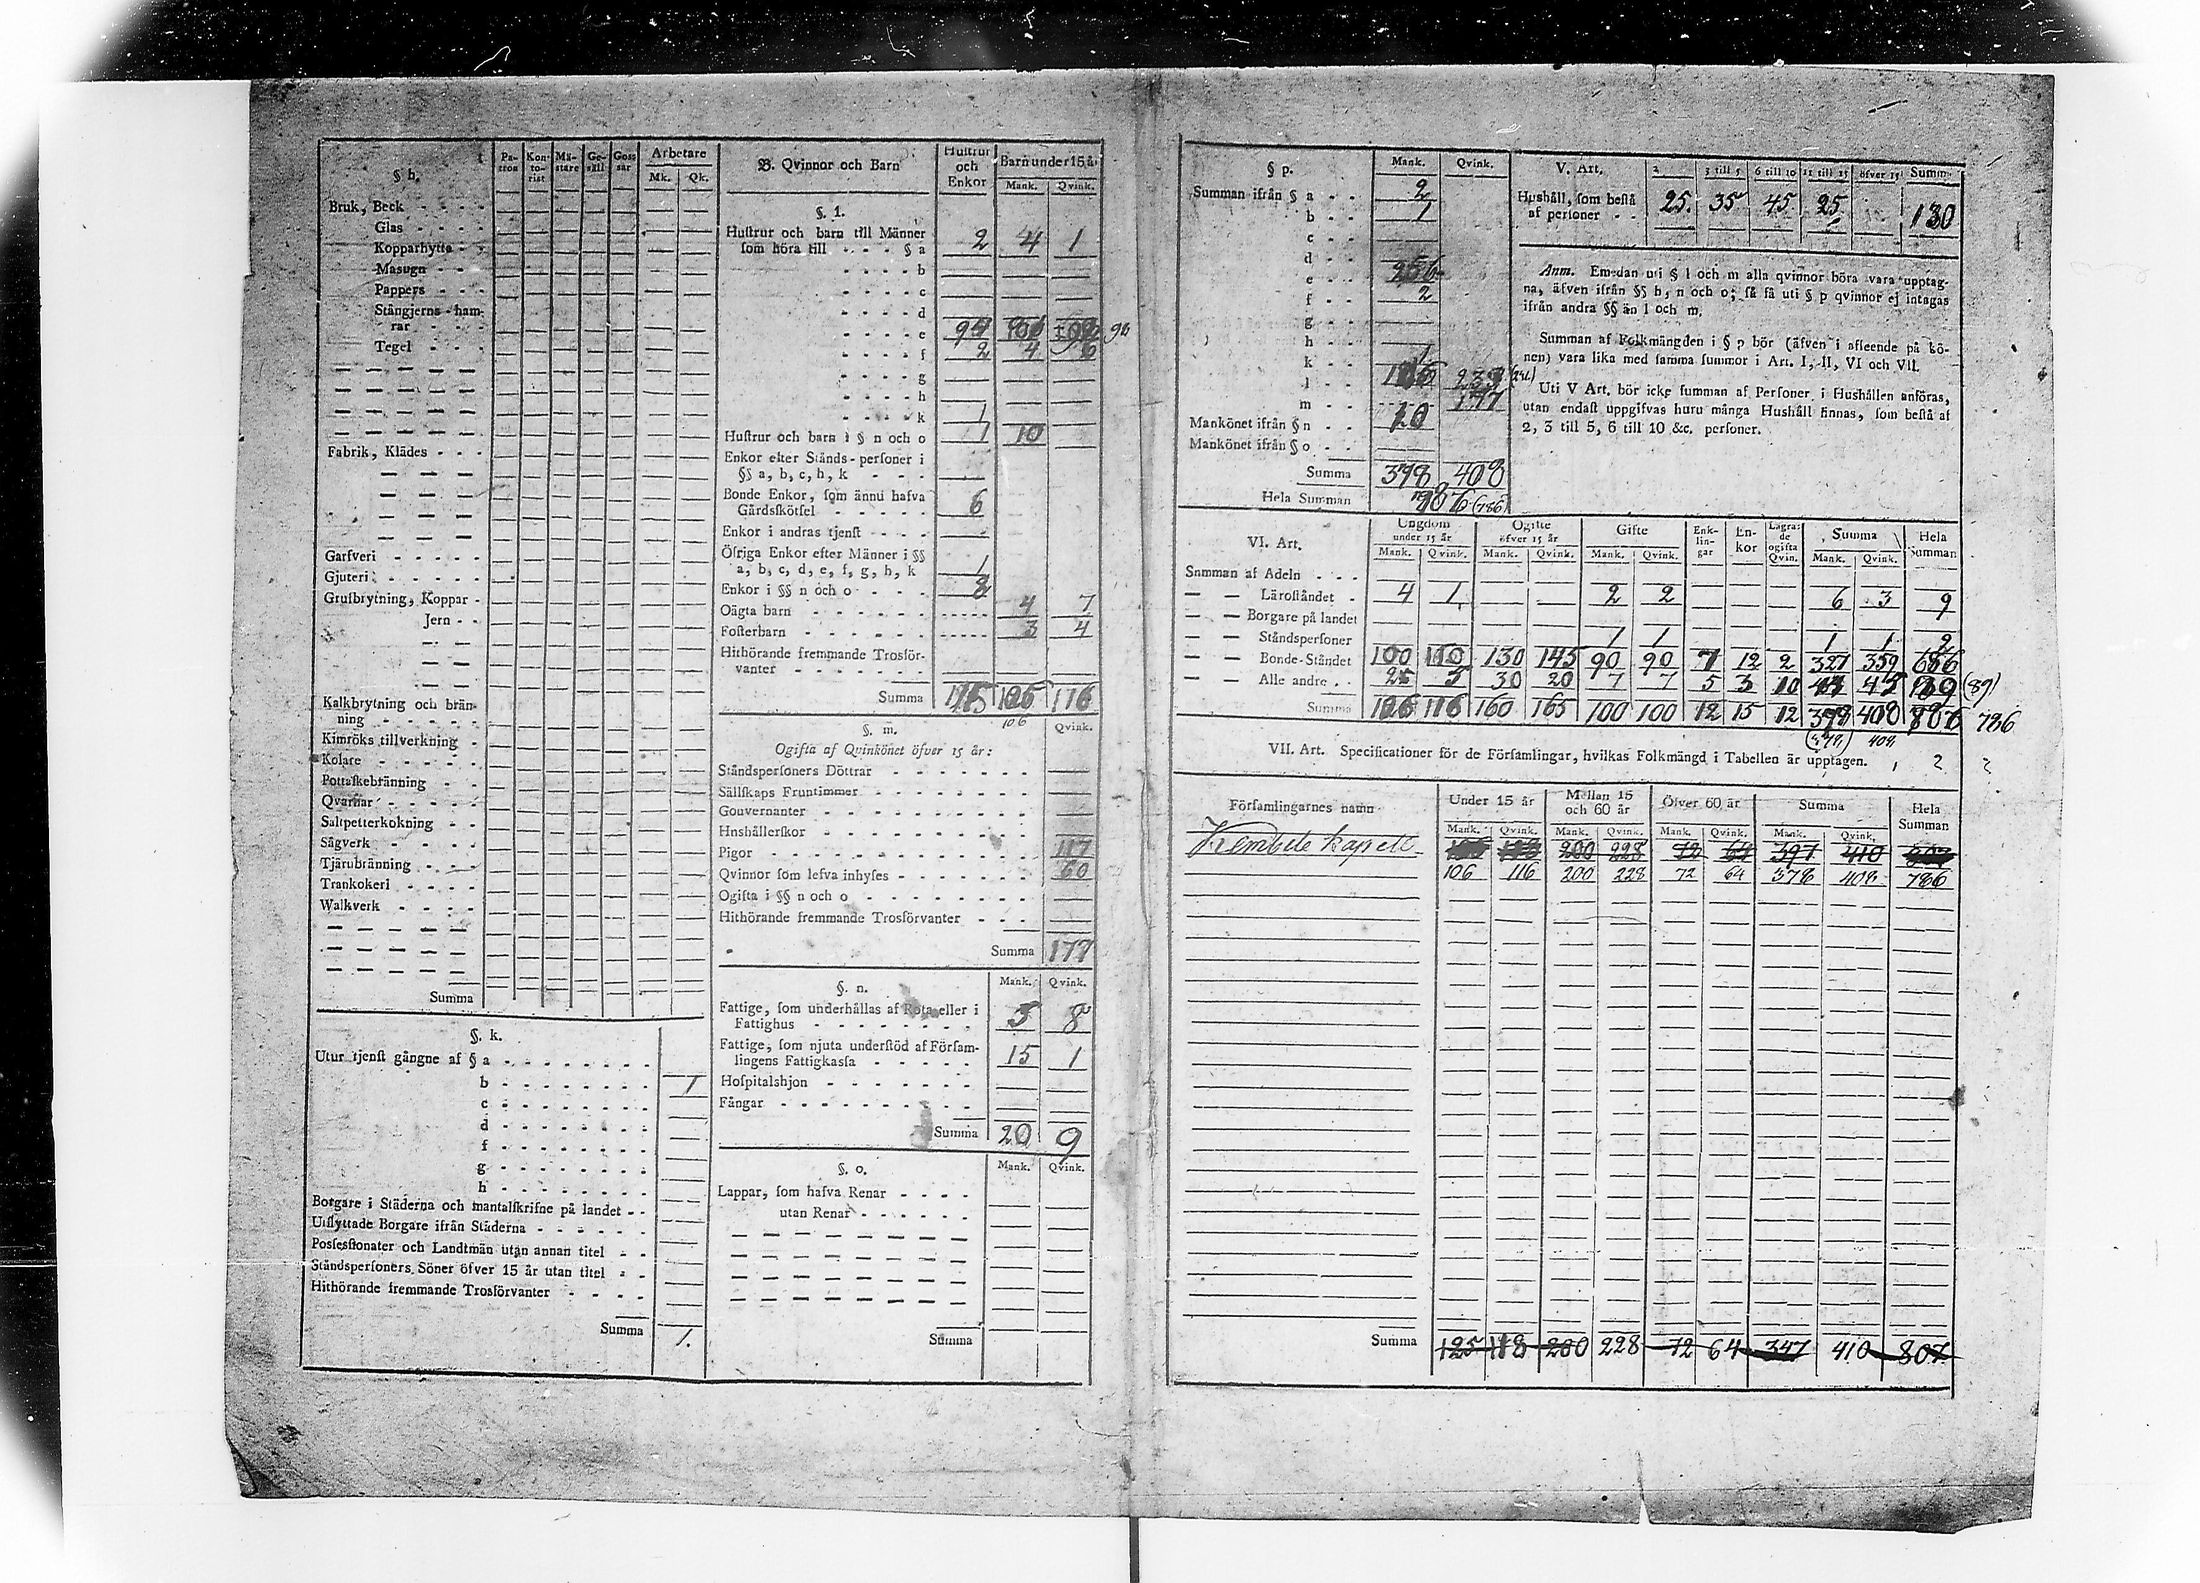 § h.
Pa- tron
Kon- to- rist
Mä- stare
Ge- säll
Gos- sar
Arbetare
Mk. Qk.
Bruk, Beck
Glas
Kopparhytte
Masugn
Pappers
Stångjerns-ham-
rar
Tegel
Fabrik, Klädes
Garfveri
Gjuteri
Grufbrytning, Koppar
Jern
Kalkbrytning och brän-
ning
Kimröks tillverkning
Kolare
Pottaskebränning
Qvarnar
Saltpetterkokning
Sågverk
Tjärubränning
Trankokeri
Walkverk
Summa
§. k.
Utur tjenst gångne af § a
b 1
c
d
f
g
h
Borgare i Städerna och mantalskrifne på landet
Utflyttade Borgare ifrån Städerna
Possessionater och Landtmän utan annan titel
Ståndspersoners Söner öfver 15 år utan titel
Hithörande fremmande Trosförvanter
Summa 1.
B. Qvinnor och Barn
Hustrur och Enkor
Barn under 15 år
Mank. Qvink.
§. 1.
Hustrur och barn till Männer
som höra till § a 2 4 1
b
c
d
e
f 2 4 6
g
h
k 1
Hustrur och barn i § n och o 1 10
Enkor efter Stånds-personer i
§§ a, b, c, h, k
Bonde Enkor, som ännu hafva
Gårdsskötsel 6
Enkor i andras tjenst
Öfriga Enkor efter Männer i §§
a, b, c, d, e, f, g, h, k 1
Enkor i §§ n och o 8
Oägta barn 4 7
Fosterbarn 3 4
Hithörande fremmande Trosför-
vanter
Summa 116
106
§. m.
Qvink.
Ogifta af Qvinkönet öfver 15 år:
Ståndspersoners Döttrar
Sällskaps Fruntimmer
Gouvernanter
Hushållerskor
Pigor 117
Qvinnor som lefva inhyses 60
Ogifta i §§ n och o
Hithörande fremmande Trosförvanter
Summa 177
§. n.
Mank. Qvink.
Fattige, som underhållas af Rota eller i
Fattighus 5 8
Fattige, som njuta understöd af Försam-
lingens Fattigkassa 15 1
Hospitalshjon
Fångar
Summa 20 9
§. o.
Mank. Qvink.
Lappar, som hafva Renar
utan Renar
Summa
§ p.
Mank. Qvink.
Summan ifrån § a 2
b 1
c
d
e 256
f 2
g
h
k 1
l
m 177
Mankönet ifrån § n 20
Mankönet ifrån § o
Summa 378 408
Hela Summan (786)
V. Art.
2 3 till 5 6 till 10 11 till 15 öfver 15 Summa
Hushåll, som bestå
af personer 25. 35 45 25 130
Anm. Emedan uti § l och m alla qvinnor böra vara upptag-
na, äfven ifrån §§ h, n och o; så få uti § p qvinnor ej intagas
ifrån andra §§ än l och m.
Summan af Folkmängden i § p bör (äfven i afseende på kö-
nen) vara lika med samma summor i Art. I, II, VI och VII.
Uti V Art. bör icke summan af Personer i Hushållen anföras,
utan endast uppgifvas huru många Hushåll finnas, som bestå af
2, 3 till 5, 6 till 10 &c. personer.
VI. Art.
Ungdom under 15 år
Ogifte öfver 15 år
Gifte
Enk- lin- gar
En- kor
Lägra- de ogifta Qvin.
Summa
Hela Summan
Mank. Qvink. Mank. Qvink. Mank. Qvink. Mank. Qvink.
Summan af Adeln
Läroståndet 4 1 2 2 6 3 9
Borgare på landet
Ståndspersoner 1 1 1 1 2
Bonde-Ståndet 100 110 130 145 90 90 7 12 2 327 359 686
Alle andre 5 30 20 7 7 5 3 10 45 (89)
Summa 106 116 160 165 100 100 12 15 12 378 408 786
VII. Art. Specificationer för de Församlingar, hvilkas Folkmängd i Tabellen är upptagen.
Församlingarnes namn
Under 15 år
Mellan 15 och 60 år
Öfver 60 år
Summa
Hela Summan
Mank. Qvink. Mank. Qvink. Mank. Qvink. Mank. Qvink.
kapell 200 228 72 64 397 410
106 116 200 228 72 64 378 408 786
Summa 125 118 200 228 72 64 347 410 807